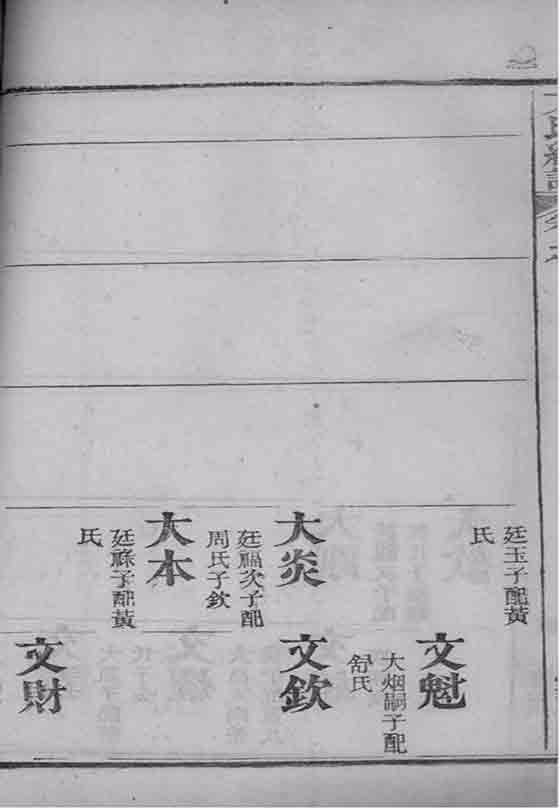 氏續譜
廷玉子配黃
氏
大炎
廷福次子配
周氏子欽
大本
廷祿子配黃
氏
文魁
大烟嗣子配
舒氏
文欽
文財